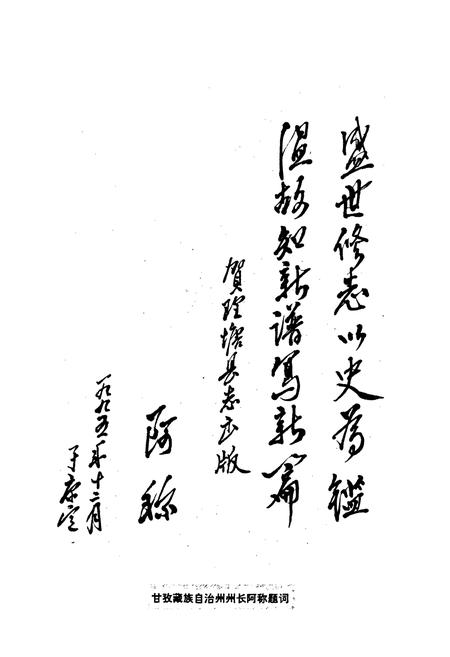 盛世修志以史為鑑
温故知新谱寫新篇
賀理塘县志出版
阿称
一九九五年十二月
于康定
甘孜藏族自治州州长阿称题词